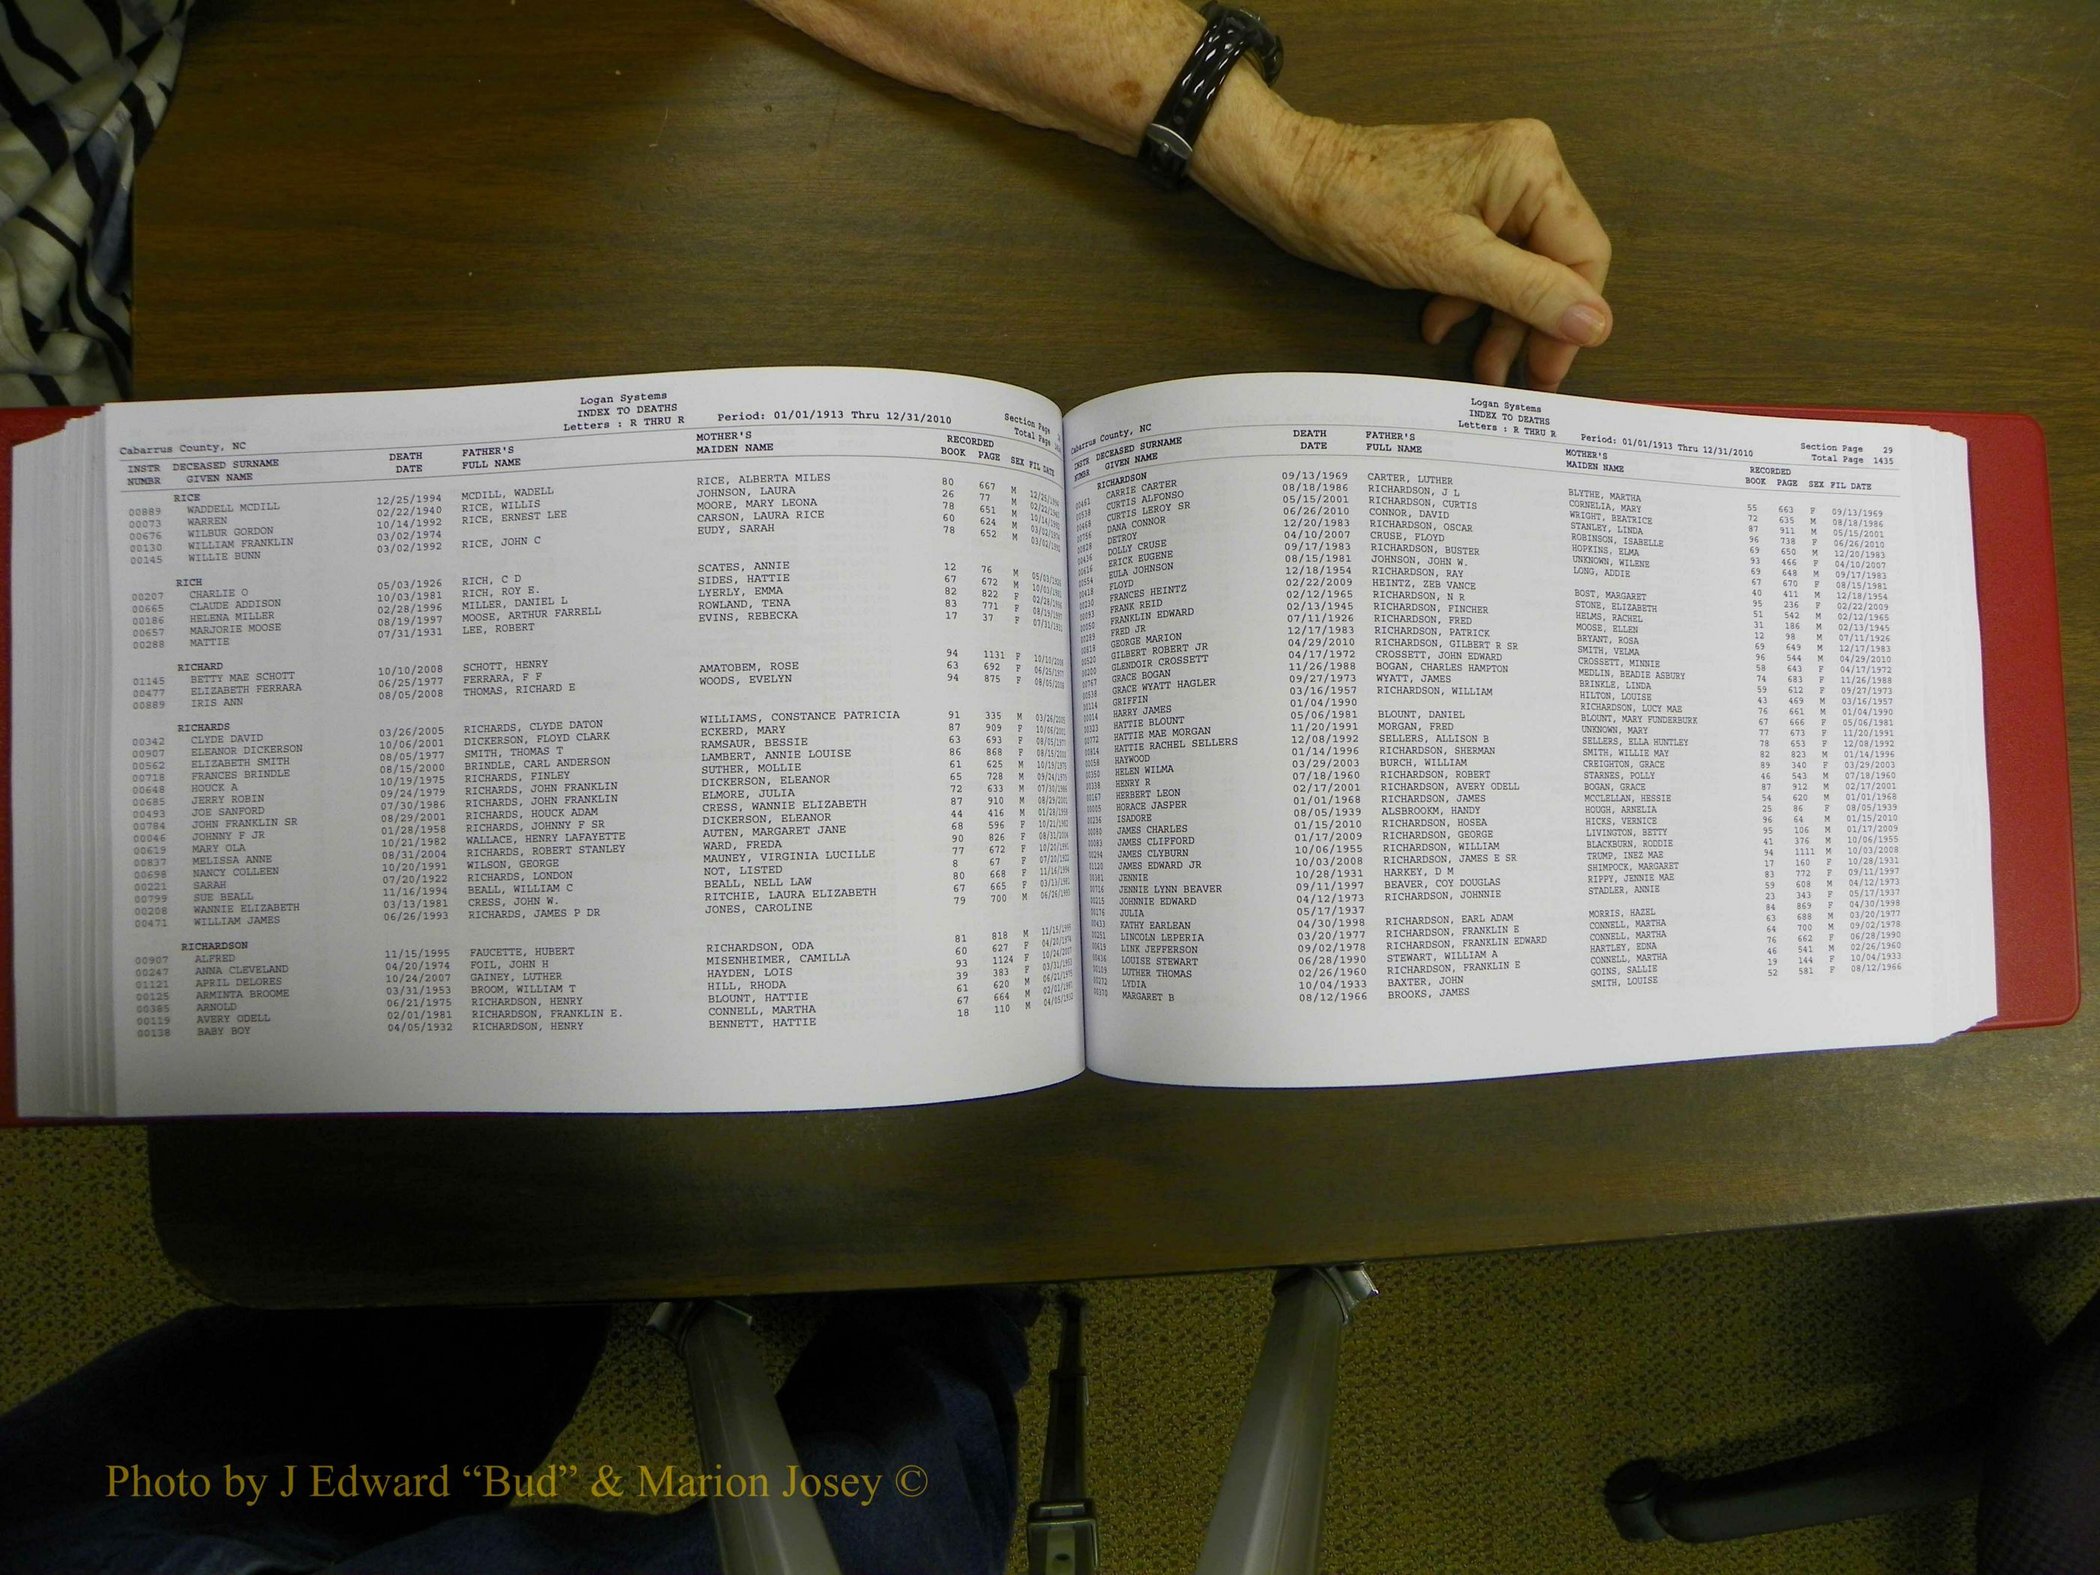 Logan Systems
INDEX TO DEATHS
Cabarrus County, NC Letters : R THRU R Period: 01/01/1913 Thru 12/31/2010 Section Page
Total Page
INSTR DECEASED SURNAME DEATH FATHER'S MOTHER'S RECORDED
NUMBR GIVEN NAME DATE FULL NAME MAIDEN NAME BOOK PAGE SEX FIL DATE
RICE
00889 WADDELL MCDILL 12/25/1994 MCDILL, WADELL RICE, ALBERTA MILES 80 667 M 12/25/1994
00073 WARREN 02/22/1940 RICE, WILLIS JOHNSON, LAURA 26 77 M 02/22/1940
00676 WILBUR GORDON 10/14/1992 RICE, ERNEST LEE MOORE, MARY LEONA 78 651 M 10/14/1992
00130 WILLIAM FRANKLIN 03/02/1974 CARSON, LAURA RICE 60 624 M 03/02/1974
00145 WILLIE BUNN 03/02/1992 RICE, JOHN C EUDY, SARAH 78 652 M 03/02/1992
RICH
00207 CHARLIE O 05/03/1926 RICH, C D SCATES, ANNIE 12 76 M 05/03/1926
00665 CLAUDE ADDISON 10/03/1981 RICH, ROY E. SIDES, HATTIE 67 672 M 10/03/1981
00186 HELENA MILLER 02/28/1996 MILLER, DANIEL L LYERLY, EMMA 82 822 F 02/28/1996
00657 MARJORIE MOOSE 08/19/1997 MOOSE, ARTHUR FARRELL ROWLAND, TENA 83 771 F 08/19/1997
00288 MATTIE 07/31/1931 LEE, ROBERT EVINS, REBECKA 17 37 F 07/31/1931
RICHARD
01145 BETTY MAE SCHOTT 10/10/2008 SCHOTT, HENRY 94 1131 F 10/10/2008
00477 ELIZABETH FERRARA 06/25/1977 FERRARA, F F AMATOBEM, ROSE 63 692 F 06/25/1977
00889 IRIS ANN 08/05/2008 THOMAS, RICHARD E WOODS, EVELYN 94 875 F 08/05/2008
RICHARDS
00342 CLYDE DAVID 03/26/2005 RICHARDS, CLYDE DATON WILLIAMS, CONSTANCE PATRICIA 91 335 M 03/26/2005
00907 ELEANOR DICKERSON 10/06/2001 DICKERSON, FLOYD CLARK ECKERD, MARY 87 909 F 10/06/2001
00562 ELIZABETH SMITH 08/05/1977 SMITH, THOMAS T RAMSAUR, BESSIE 63 693 F 08/05/1977
00718 FRANCES BRINDLE 08/15/2000 BRINDLE, CARL ANDERSON LAMBERT, ANNIE LOUISE 86 868 F 08/15/2000
00648 HOUCK A 10/19/1975 RICHARDS, FINLEY SUTHER, MOLLIE 61 625 M 10/19/1975
00685 JERRY ROBIN 09/24/1979 RICHARDS, JOHN FRANKLIN DICKERSON, ELEANOR 65 728 M 09/24/1979
00493 JOE SANFORD 07/30/1986 RICHARDS, JOHN FRANKLIN ELMORE, JULIA 72 633 M 07/30/1986
00784 JOHN FRANKLIN SR 08/29/2001 RICHARDS, HOUCK ADAM CRESS, WANNIE ELIZABETH 87 910 M 08/29/2001
00046 JOHNNY F JR 01/28/1958 RICHARDS, JOHNNY F SR DICKERSON, ELEANOR 44 416 M 01/28/1958
00619 MARY OLA 10/21/1982 WALLACE, HENRY LAFAYETTE AUTEN, MARGARET JANE 68 596 F 10/21/1982
00837 MELISSA ANNE 08/31/2004 RICHARDS, ROBERT STANLEY WARD, FREDA 90 826 F 08/31/2004
00698 NANCY COLLEEN 10/20/1991 WILSON, GEORGE MAUNEY, VIRGINIA LUCILLE 77 672 F 10/20/1991
00221 SARAH 07/20/1922 RICHARDS, LONDON NOT, LISTED 8 67 F 07/20/1922
00799 SUE BEALL 11/16/1994 BEALL, WILLIAM C BEALL, NELL LAW 80 668 F 11/16/1994
00208 WANNIE ELIZABETH 03/13/1981 CRESS, JOHN W. RITCHIE, LAURA ELIZABETH 67 665 F 03/13/1981
00471 WILLIAM JAMES 06/26/1993 RICHARDS, JAMES P DR JONES, CAROLINE 79 700 M 06/26/1993
RICHARDSON
00907 ALFRED 11/15/1995 FAUCETTE, HUBERT RICHARDSON, ODA 81 818 M 11/15/1995
00247 ANNA CLEVELAND 04/20/1974 FOIL, JOHN H MISENHEIMER, CAMILLA 60 627 F 04/20/1974
01121 APRIL DELORES 10/24/2007 GAINEY, LUTHER HAYDEN, LOIS 93 1124 F 10/24/2007
00125 ARMINTA BROOME 03/31/1953 BROOM, WILLIAM T HILL, RHODA 39 383 F 03/31/1953
00385 ARNOLD 06/21/1975 RICHARDSON, HENRY BLOUNT, HATTIE 61 620 M 06/21/1975
00119 AVERY ODELL 02/01/1981 RICHARDSON, FRANKLIN E. CONNELL, MARTHA 67 664 M 02/01/1981
00138 BABY BOY 04/05/1932 RICHARDSON, HENRY BENNETT, HATTIE 18 110 M 04/05/1932
Logan Systems
INDEX TO DEATHS
Cabarrus County, NC Letters : R THRU R Period: 01/01/1913 Thru 12/31/2010 Section Page 29
Total Page 1435
INSTR DECEASED SURNAME DEATH FATHER'S MOTHER'S RECORDED
NUMBR GIVEN NAME DATE FULL NAME MAIDEN NAME BOOK PAGE SEX FIL DATE
RICHARDSON
00461 CARRIE CARTER 09/13/1969 CARTER, LUTHER BLYTHE, MARTHA 55 663 F 09/13/1969
00538 CURTIS ALFONSO 08/18/1986 RICHARDSON, J L CORNELIA, MARY 72 635 M 08/18/1986
00468 CURTIS LEROY SR 05/15/2001 RICHARDSON, CURTIS WRIGHT, BEATRICE 87 911 M 05/15/2001
00756 DANA CONNOR 06/26/2010 CONNOR, DAVID STANLEY, LINDA 96 738 F 06/26/2010
00828 DETROY 12/20/1983 RICHARDSON, OSCAR ROBINSON, ISABELLE 69 650 M 12/20/1983
00436 DOLLY CRUSE 04/10/2007 CRUSE, FLOYD HOPKINS, ELMA 93 466 F 04/10/2007
00616 ERICK EUGENE 09/17/1983 RICHARDSON, BUSTER UNKNOWN, WILENE 69 648 M 09/17/1983
00554 EULA JOHNSON 08/15/1981 JOHNSON, JOHN W. LONG, ADDIE 67 670 F 08/15/1981
00418 FLOYD 12/18/1954 RICHARDSON, RAY 40 411 M 12/18/1954
00230 FRANCES HEINTZ 02/22/2009 HEINTZ, ZEB VANCE BOST, MARGARET 95 236 F 02/22/2009
00093 FRANK REID 02/12/1965 RICHARDSON, N R STONE, ELIZABETH 51 542 M 02/12/1965
00050 FRANKLIN EDWARD 02/13/1945 RICHARDSON, FINCHER HELMS, RACHEL 31 186 M 02/13/1945
00289 FRED JR 07/11/1926 RICHARDSON, FRED MOOSE, ELLEN 12 98 M 07/11/1926
00818 GEORGE MARION 12/17/1983 RICHARDSON, PATRICK BRYANT, ROSA 69 649 M 12/17/1983
00520 GILBERT ROBERT JR 04/29/2010 RICHARDSON, GILBERT R SR SMITH, VELMA 96 544 M 04/29/2010
00200 GLENDOIR CROSSETT 04/17/1972 CROSSETT, JOHN EDWARD CROSSETT, MINNIE 58 643 F 04/17/1972
00767 GRACE BOGAN 11/26/1988 BOGAN, CHARLES HAMPTON MEDLIN, BEADIE ASBURY 74 683 F 11/26/1988
00538 GRACE WYATT HAGLER 09/27/1973 WYATT, JAMES BRINKLE, LINDA 59 612 F 09/27/1973
00114 GRIFFIN 03/16/1957 RICHARDSON, WILLIAM HILTON, LOUISE 43 469 M 03/16/1957
00014 HARRY JAMES 01/04/1990 RICHARDSON, LUCY MAE 76 661 M 01/04/1990
00313 HATTIE BLOUNT 05/06/1981 BLOUNT, DANIEL BLOUNT, MARY FUNDERBURK 67 666 F 05/06/1981
00772 HATTIE MAE MORGAN 11/20/1991 MORGAN, FRED UNKNOWN, MARY 77 673 F 11/20/1991
00814 HATTIE RACHEL SELLERS 12/08/1992 SELLERS, ALLISON B SELLERS, ELLA HUNTLEY 78 653 F 12/08/1992
00058 HAYWOOD 01/14/1996 RICHARDSON, SHERMAN SMITH, WILLIE MAY 82 823 M 01/14/1996
00350 HELEN WILMA 03/29/2003 BURCH, WILLIAM CREIGHTON, GRACE 89 340 F 03/29/2003
00338 HENRY R 07/18/1960 RICHARDSON, ROBERT STARNES, POLLY 46 543 M 07/18/1960
00167 HERBERT LEON 02/17/2001 RICHARDSON, AVERY ODELL BOGAN, GRACE 87 912 M 02/17/2001
00005 HORACE JASPER 01/01/1968 RICHARDSON, JAMES MCCLELLAN, HESSIE 54 620 M 01/01/1968
00236 ISADORE 08/05/1939 ALSBROOKM, HANDY HOUGH, ARNELIA 25 86 F 08/05/1939
00080 JAMES CHARLES 01/15/2010 RICHARDSON, HOSEA HICKS, VERNICE 96 64 M 01/15/2010
00083 JAMES CLIFFORD 01/17/2009 RICHARDSON, GEORGE LIVINGTON, BETTY 95 106 M 01/17/2009
00294 JAMES CLYBURN 10/06/1955 RICHARDSON, WILLIAM BLACKBURN, RODDIE 41 376 M 10/06/1955
01120 JAMES EDWARD JR 10/03/2008 RICHARDSON, JAMES E SR TRUMP, INEZ MAE 94 1111 M 10/03/2008
00381 JENNIE 10/28/1931 HARKEY, D M SHIMPOCK, MARGARET 17 160 F 10/28/1931
00716 JENNIE LYNN BEAVER 09/11/1997 BEAVER, COY DOUGLAS RIPPY, JENNIE MAE 83 772 F 09/11/1997
00215 JOHNNIE EDWARD 04/12/1973 RICHARDSON, JOHNNIE STADLER, ANNIE 59 608 M 04/12/1973
00176 JULIA 05/17/1937 23 343 F 05/17/1937
00433 KATHY EARLEAN 04/30/1998 RICHARDSON, EARL ADAM MORRIS, HAZEL 84 869 F 04/30/1998
00251 LINCOLN LEPERIA 03/20/1977 RICHARDSON, FRANKLIN E CONNELL, MARTHA 63 688 M 03/20/1977
00619 LINK JEFFERSON 09/02/1978 RICHARDSON, FRANKLIN EDWARD CONNELL, MARTHA 64 700 M 09/02/1978
00436 LOUISE STEWART 06/28/1990 STEWART, WILLIAM A HARTLEY, EDNA 76 662 F 06/28/1990
00109 LUTHER THOMAS 02/26/1960 RICHARDSON, FRANKLIN E CONNELL, MARTHA 46 541 M 02/26/1960
00272 LYDIA 10/04/1933 BAXTER, JOHN GOINS, SALLIE 19 144 F 10/04/1933
00370 MARGARET B 08/12/1966 BROOKS, JAMES SMITH, LOUISE 52 581 F 08/12/1966
Photo by J Edward “Bud” & Marion Josey ©